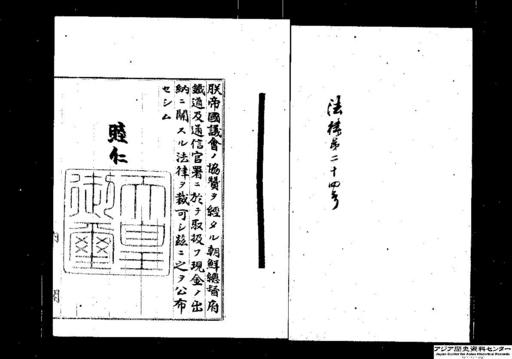 法律第二十四号
朕帝國議會ノ協贊ヲ經タル朝鮮總督府
鐵道及通信官署ニ於テ取扱フ現金ノ出
納ニ關スル法律ヲ裁可シ玆ニ之ヲ公布
セシム
睦仁
天皇
御璽
内閣
アジア歴史資料センター
Japan Center for Asian Historical Records